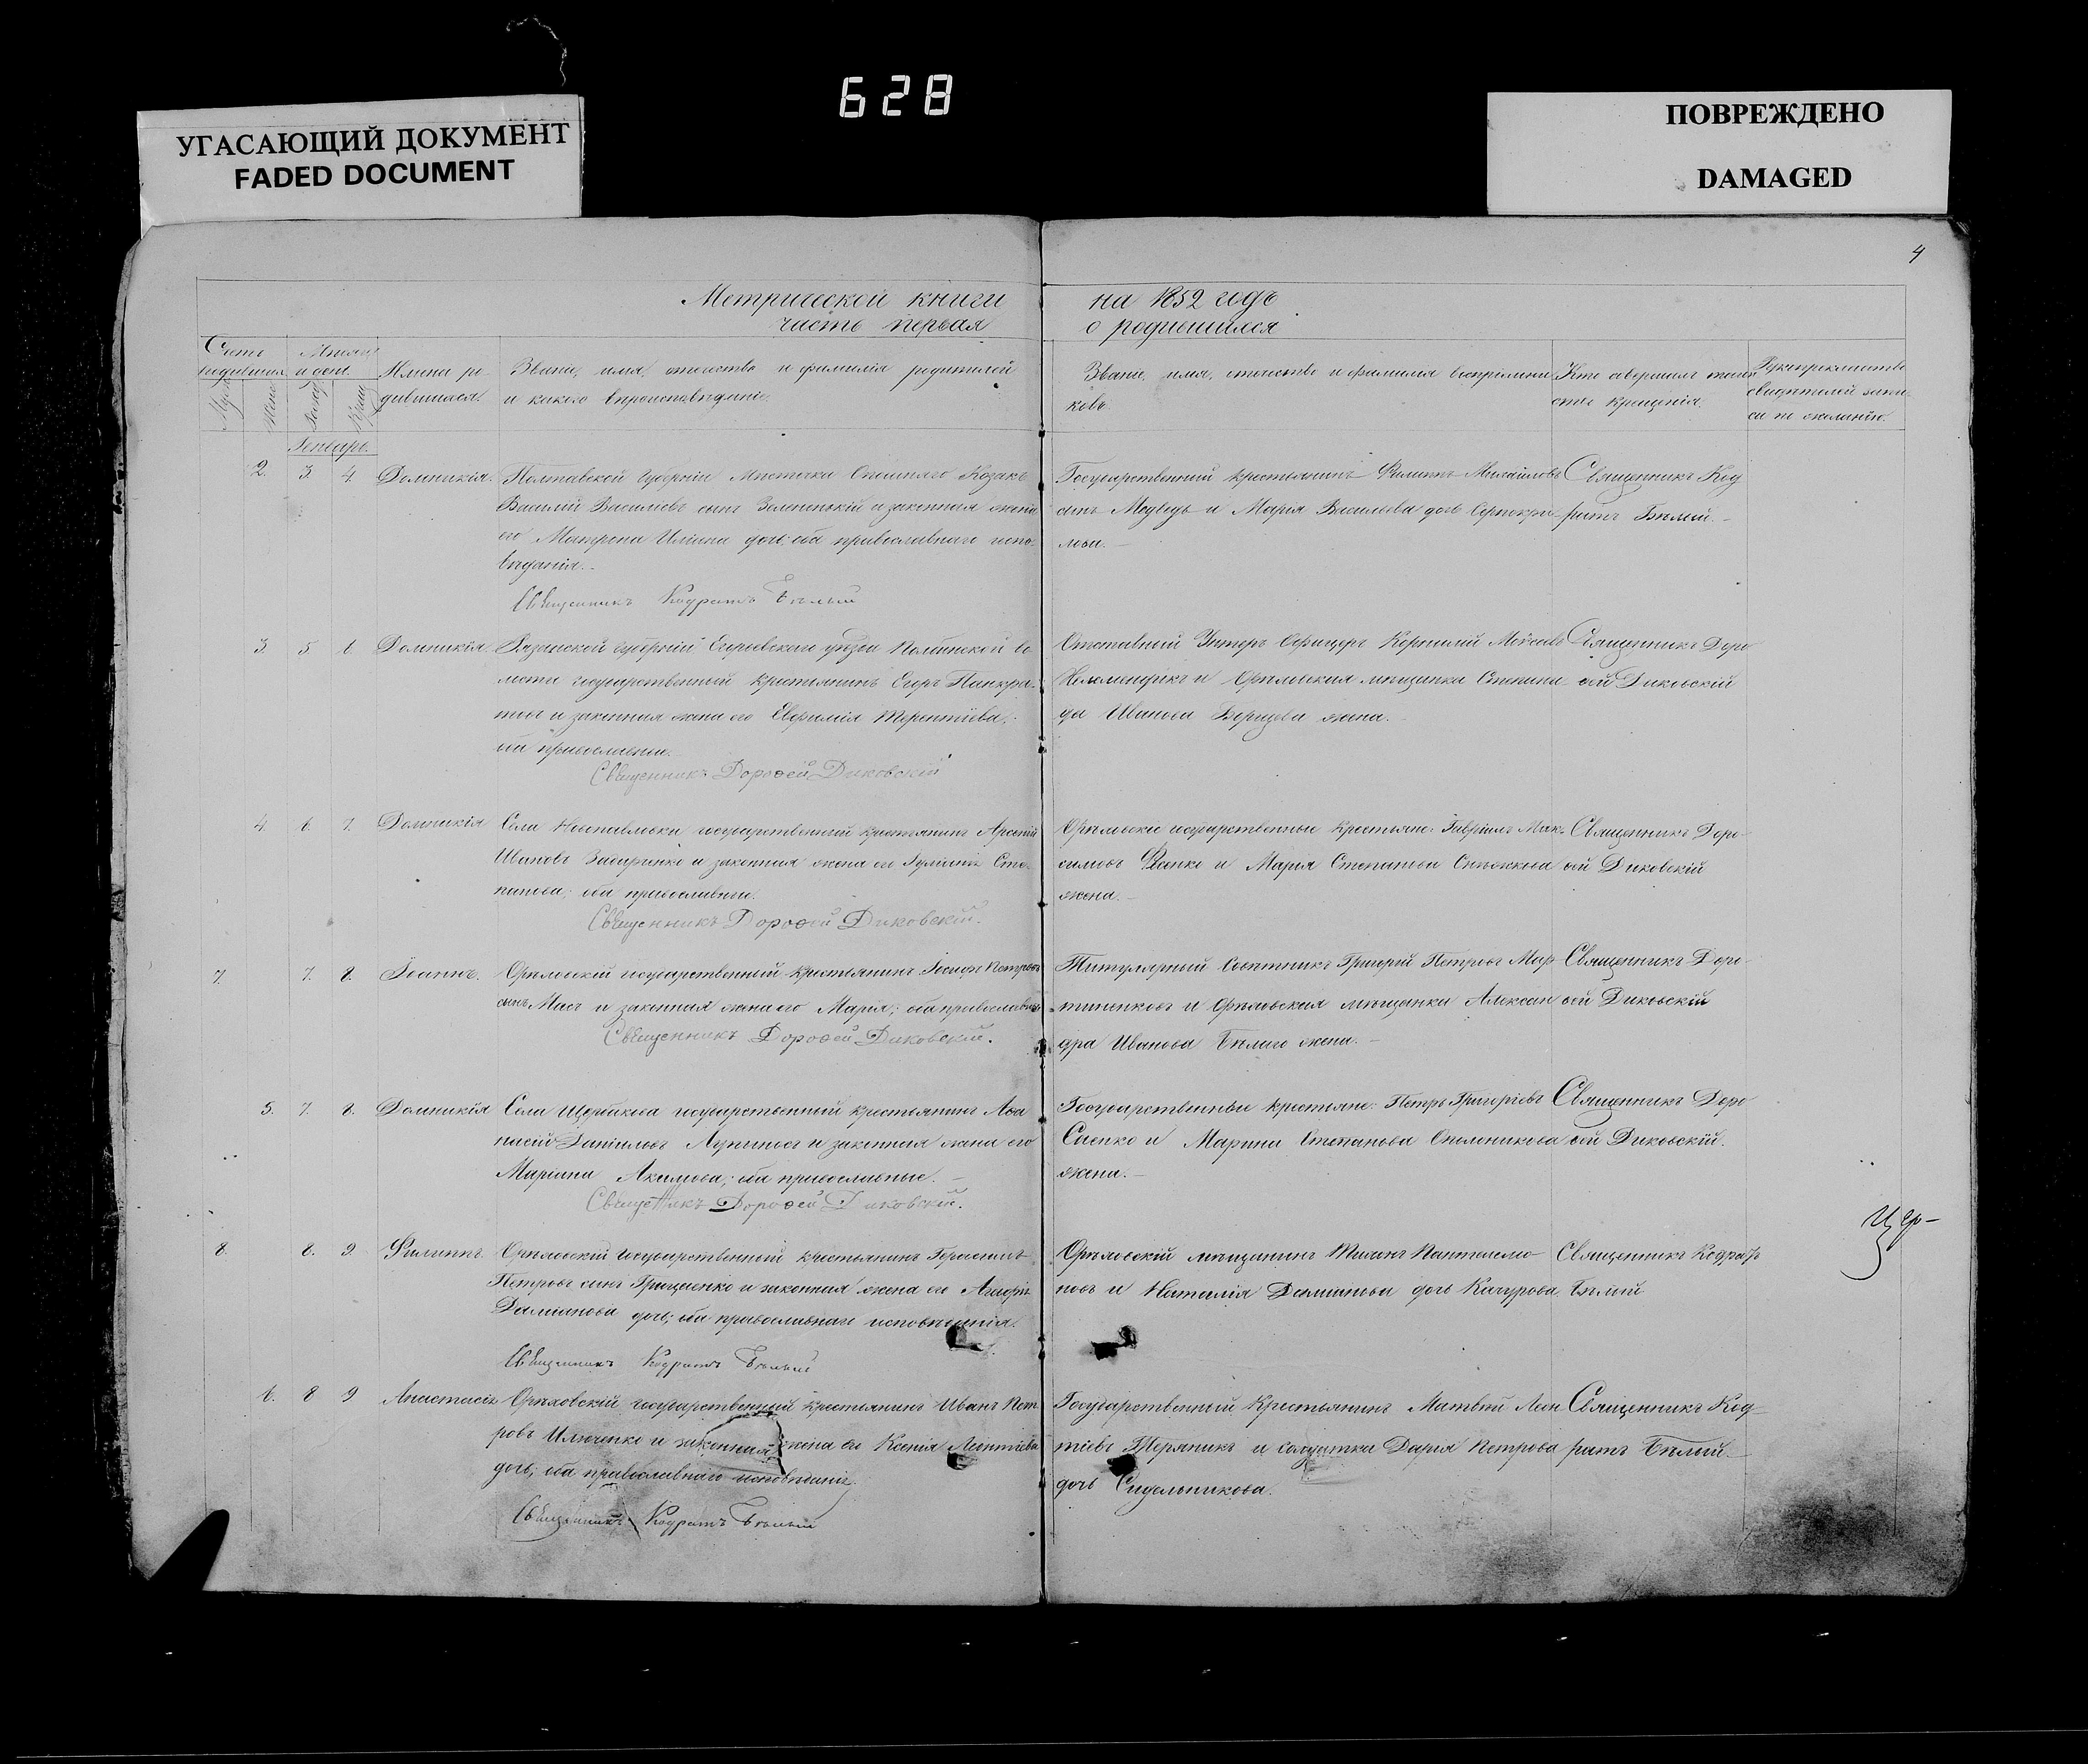 628
УГАСАЮЩИЙ ДОКУМЕНТ
FADED DOCUMENT
ПОВРЕЖДЕНО
DAMAGED
4
Метрической книги на 1852 годъ
часть первая о родившихся
Счетъ родившихся
Муж. Жен.
Мѣсяцъ и день
Рожд. Крещ.
Имена ро
дившихся.
Званіе, имя, отечество и фамилія родителей
и какого вѣроисповѣданія.
Званіе, имя, отчество и фамилія воспріемни
ковъ.
Кто совершалъ таин
ство крещенія.
Рукоприкладство
свидѣтелей запи
си по желанію.
Генварь.
2. 3. 4. Домникія. Полтавской губерніи Мѣстечка Опошняго Козакъ
Василій Васильевъ сынъ Зелененькій и законная жена
его Матрона Ильина дочь; оба православнаго испо-
вѣданія.
Священникъ Кодратъ Бѣлый
Государственный крестьянинъ Филиппъ Михайловъ
сынъ Медведь и Марія Васильева дочь
Священникъ Код
ратъ Бѣлый.
3 5 6 Домникія. Рязанской губерніи Егорьевского уѣзда во
лости государственный крестьянинъ Егоръ Панкра-
товъ и законная жена его Евфимія Терентіева,
оба православные.
Священникъ Дороѳей Диковскій
Отставный Унтеръ Офицеръ Корнилій Моисеевъ
и Орѣховская мѣщанка Степани
да Иванова жена.
Священникъ Доро
ѳей Диковскій
4. 6. 7. Домникія Села Новопавловки государственный крестьянинъ Арсеній
Ивановъ и законная жена его Гуліанія Сте-
панова; оба православные.
Священникъ Дороѳей Диковскій.
Орѣховскіе государственные крестьяне: Гавріилъ Мак-
симовъ и Марія Степанова
жена.
Священникъ Доро-
ѳей Диковскій
7. 7. 8. Іоаннъ. Орѣховскій государственный крестьянинъ Іосифъ Петровъ
сынъ и законная жена его Марія; оба православные
Священникъ Дороѳей Диковскій.
Титулярный Совѣтникъ Григорій Петровъ Мар
тиненковъ и Орѣховская мѣщанка Алексан
дра Иванова Бѣлаго жена.
Священникъ Доро-
ѳей Диковскій
5. 7. 8. Домникія Села Щербакова государственный крестьянинъ Аѳа
насій Даніиловъ Лупиносъ и законная жена его
Маріина Акимова; оба православные.
Священникъ Дороѳей Диковскій.
Государственные крестьяне: Петръ Григоріевъ
Саенко и Марина Степанова
жена.
Священникъ Доро
ѳей Диковскій.
Цер-
8. 8. 9. Филиппъ Орѣховскій государственный крестьянинъ Герасимъ
Петровъ сынъ Грицаенко и законная жена его Агафія
Даміанова дочь; оба православнаго исповѣданія.
Священникъ Кодратъ Бѣлый
Орѣховскій мѣщанинъ Пантелемо
новъ и Наталія Даміанова дочь Качурова
Священникъ Кодратъ
Бѣлый
6. 8 9 Анастасія Орѣховскій государственный крестьянинъ Иванъ Пет
ровъ Ильченко и законная жена его Ксенія Леонтіева
дочь; оба православнаго исповѣданія.
Священникъ Кодратъ Бѣлый
Государственный Крестьянинъ Матвѣй Леон
тіевъ и солдатка Дарія Петрова
дочь Сидельникова.
Священникъ Код-
ратъ Бѣлый.